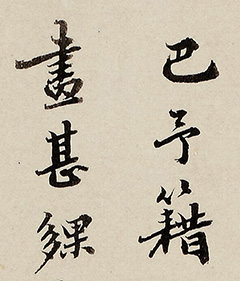 已予籍
畫甚夥